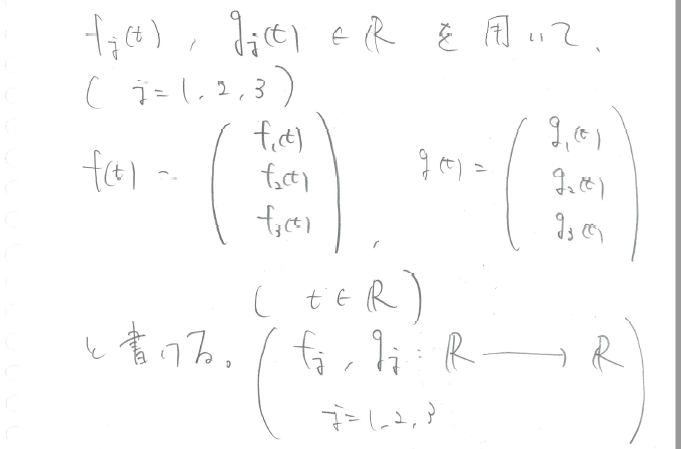 f_j(t), g_j(t) ∈ ℝ を用いて、
( j = 1, 2, 3 )
f(t) = ( f_1(t) f_2(t) f_3(t) ), g(t) = ( g_1(t) g_2(t) g_3(t) )
( t ∈ ℝ )
と書ける。 ( f_j, g_j : ℝ ⟶ ℝ
j = 1, 2, 3 )